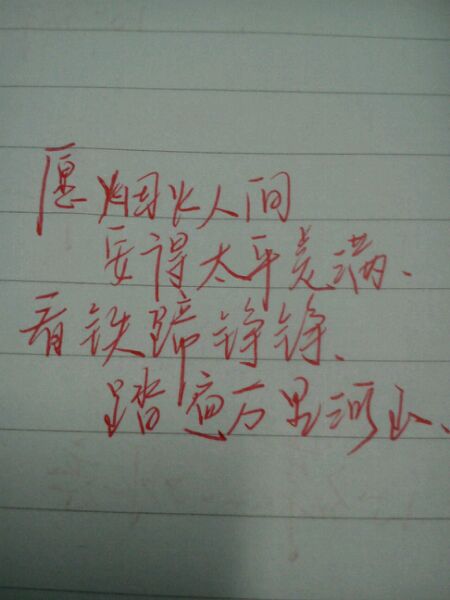 愿烟火人间
安得太平美满、
看铁蹄铮铮、
踏遍万里河山、